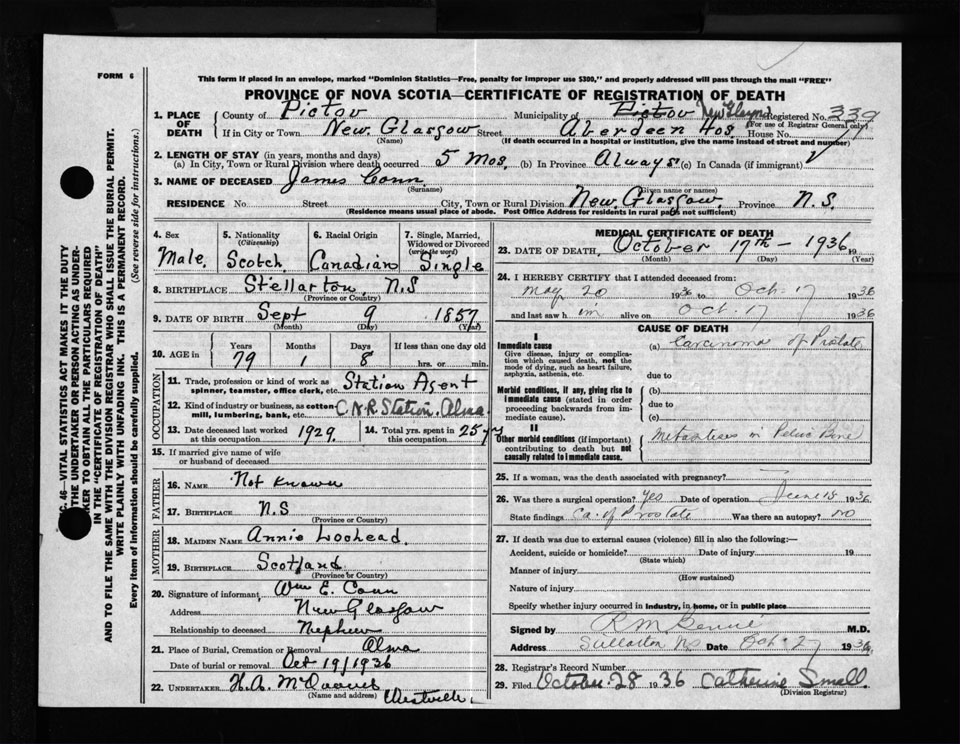 FORM 6
This form if placed in an envelope, marked "Dominion Statistics—Free, penalty for improper use $300," and properly addressed will pass through the mail "FREE"
PROVINCE OF NOVA SCOTIA—CERTIFICATE OF REGISTRATION OF DEATH
1. PLACE OF DEATH County of Pictou Municipality of Pictou New Registered No. 339
(For use of Registrar General only)
If in City or Town New Glasgow Street Aberdeen Hos. House No.
(Name) (If death occurred in a hospital or institution, give the name instead of street and number)
2. LENGTH OF STAY (in years, months and days)
(a) In City, Town or Rural Division where death occurred 5 Mos. (b) In Province Always (c) In Canada (if immigrant)
3. NAME OF DECEASED James Conn
(Surname) (Given name or names)
RESIDENCE No Street City, Town or Rural Division New Glasgow. Province N.S.
(Residence means usual place of abode. Post Office Address for residents in rural parts not sufficient)
4. Sex Male.
5. Nationality (Citizenship) Scotch
6. Racial Origin Canadian
7. Single, Married, Widowed or Divorced (write the word) Single
8. BIRTHPLACE Stellarton, N.S
(Province or Country)
9. DATE OF BIRTH Sept 9 1857
(Month) (Day) (Year)
10. AGE in Years Months Days If less than one day old
79 1 8 hrs. or min.
OCCUPATION
11. Trade, profession or kind of work as spinner, teamster, office clerk, etc. Station Agent
12. Kind of industry or business, as cotton-mill, lumbering, bank, etc. C.N.R Station. Alma
13. Date deceased last worked at this occupation 1929.
14. Total yrs. spent in this occupation 25 yr
15. If married give name of wife or husband of deceased
FATHER
16. NAME Not Known
17. BIRTHPLACE N.S
(Province or Country)
MOTHER
18. MAIDEN NAME Annie Lochead.
19. BIRTHPLACE Scotland.
(Province or Country)
20. Signature of informant Wm E. Conn
Address New Glasgow
Relationship to deceased Nephew
21. Place of Burial, Cremation or Removal Alma
Date of burial or removal Oct 19/1936
22. UNDERTAKER H.A.
(Name and address) Westville.
MEDICAL CERTIFICATE OF DEATH
23. DATE OF DEATH, October 17th — 1936 19
(Month) (Day) (Year)
24. I HEREBY CERTIFY that I attended deceased from:
May 20 1936 to Oct. 17 1936
and last saw h im alive on Oct. 17 1936
CAUSE OF DEATH
I
Immediate cause
Give disease, injury or complication which caused death, not the mode of dying, such as heart failure, asphyxia, asthenia, etc.
(a) Carcinoma of Prostate
due to
Morbid conditions, if any, giving rise to immediate cause (stated in order proceeding backwards from immediate cause).
(b)
due to
(c)
II
Other morbid conditions (if important) contributing to death but not causally related to immediate cause.
Metastases in Pelvic Bone
25. If a woman, was the death associated with pregnancy?
26. Was there a surgical operation? Yes Date of operation June 18 1936
State findings Ca. of Prostate Was there an autopsy? No
27. If death was due to external causes (violence) fill in also the following:—
Accident, suicide or homicide? Date of injury 19
(State which)
Manner of injury
(How sustained)
Nature of injury
Specify whether injury occurred in industry, in home, or in public place
Signed by M.D.
Address Stellarton NS Date Oct. 27 1936
28. Registrar's Record Number
29. Filed October 28 1936 Catherine Small.
(Division Registrar)
C. 46—VITAL STATISTICS ACT MAKES IT THE DUTY
THE UNDERTAKER OR PERSON ACTING AS UNDER-
TAKER TO OBTAIN ALL THE PARTICULARS REQUIRED
IN THE "CERTIFICATE OF REGISTRATION OF DEATH"
AND TO FILE THE SAME WITH THE DIVISION REGISTRAR WHO SHALL ISSUE THE BURIAL PERMIT.
WRITE PLAINLY WITH UNFADING INK. THIS IS A PERMANENT RECORD.
Every item of information should be carefully supplied. (See reverse side for instructions.)